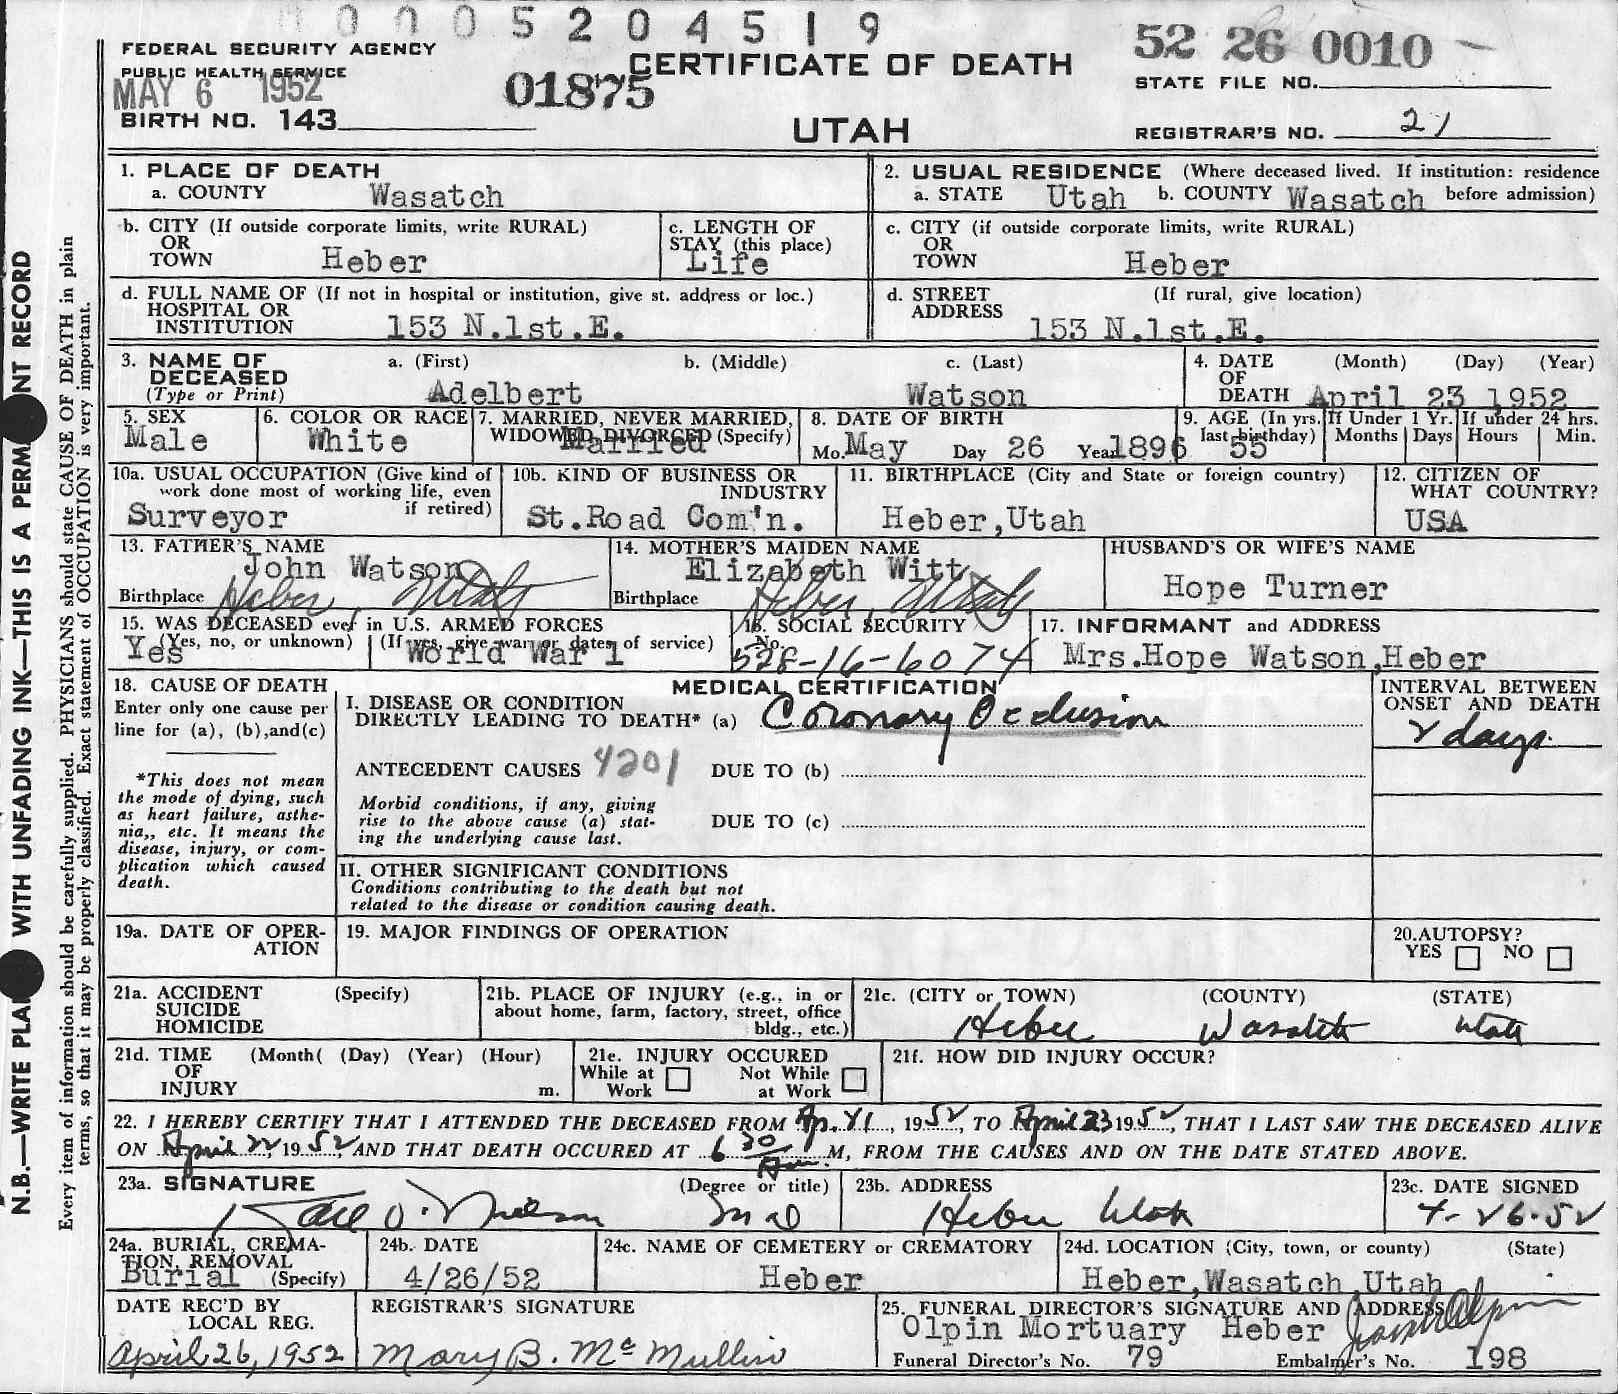 0 0 0 5 2 0 4 5 1 9
FEDERAL SECURITY AGENCY
PUBLIC HEALTH SERVICE
MAY 6 1952
BIRTH NO. 143
01875
CERTIFICATE OF DEATH
UTAH
52 26 0010
STATE FILE NO.
REGISTRAR'S NO. 21
N.B.—WRITE PLAI WITH UNFADING INK—THIS IS A PERMA NT RECORD
Every item of information should be carefully supplied. PHYSICIANS should state CAUSE OF DEATH in plain
terms, so that it may be properly classified. Exact statement of OCCUPATION is very important.
1. PLACE OF DEATH
a. COUNTY Wasatch
2. USUAL RESIDENCE (Where deceased lived. If institution: residence
a. STATE Utah b. COUNTY Wasatch before admission)
b. CITY (If outside corporate limits, write RURAL)
OR
TOWN Heber
c. LENGTH OF
STAY (this place)
Life
c. CITY (if outside corporate limits, write RURAL)
OR
TOWN Heber
d. FULL NAME OF (If not in hospital or institution, give st. address or loc.)
HOSPITAL OR
INSTITUTION 153 N.1st.E.
d. STREET (If rural, give location)
ADDRESS
153 N.1st.E.
3. NAME OF a. (First) b. (Middle) c. (Last)
DECEASED
(Type or Print) Adelbert Watson
4. DATE (Month) (Day) (Year)
OF
DEATH April 23 1952
5. SEX
Male
6. COLOR OR RACE
White
7. MARRIED, NEVER MARRIED,
WIDOWED, DIVORCED (Specify)
Married
8. DATE OF BIRTH
Mo. May Day 26 Year 1896
9. AGE (In yrs.
last birthday) 55
If Under 1 Yr.
Months Days
If under 24 hrs.
Hours Min.
10a. USUAL OCCUPATION (Give kind of
work done most of working life, even
if retired)
Surveyor
10b. KIND OF BUSINESS OR
INDUSTRY
St.Road Com'n.
11. BIRTHPLACE (City and State or foreign country)
Heber,Utah
12. CITIZEN OF
WHAT COUNTRY?
USA
13. FATHER'S NAME
John Watson
Birthplace Heber, Utah
14. MOTHER'S MAIDEN NAME
Elizabeth Witt
Birthplace Heber, Utah
HUSBAND'S OR WIFE'S NAME
Hope Turner
15. WAS DECEASED ever in U.S. ARMED FORCES
Yes (Yes, no, or unknown) (If yes, give war or dates of service)
World War 1
16. SOCIAL SECURITY
No.
528-16-6074
17. INFORMANT and ADDRESS
Mrs.Hope Watson,Heber
18. CAUSE OF DEATH
Enter only one cause per
line for (a), (b),and(c)
*This does not mean
the mode of dying, such
as heart failure, asthe-
nia,, etc. It means the
disease, injury, or com-
plication which caused
death.
MEDICAL CERTIFICATION
I. DISEASE OR CONDITION
DIRECTLY LEADING TO DEATH* (a) Coronary Occlusion
INTERVAL BETWEEN
ONSET AND DEATH
2 days.
ANTECEDENT CAUSES 4201 DUE TO (b)
Morbid conditions, if any, giving
rise to the above cause (a) stat-
ing the underlying cause last.
DUE TO (c)
II. OTHER SIGNIFICANT CONDITIONS
Conditions contributing to the death but not
related to the disease or condition causing death.
19a. DATE OF OPER-
ATION
19. MAJOR FINDINGS OF OPERATION
20.AUTOPSY?
YES NO
21a. ACCIDENT (Specify)
SUICIDE
HOMICIDE
21b. PLACE OF INJURY (e.g., in or
about home, farm, factory, street, office
bldg., etc.)
21c. (CITY or TOWN) (COUNTY) (STATE)
Heber Wasatch Utah
21d. TIME (Month( (Day) (Year) (Hour)
OF
INJURY m.
21e. INJURY OCCURED
While at Not While
Work at Work
21f. HOW DID INJURY OCCUR?
22. I HEREBY CERTIFY THAT I ATTENDED THE DECEASED FROM Ap. 21, 1952, TO April 23 1952, THAT I LAST SAW THE DECEASED ALIVE
ON April 22 1952 AND THAT DEATH OCCURED AT 6 30 Am. M, FROM THE CAUSES AND ON THE DATE STATED ABOVE.
23a. SIGNATURE (Degree or title)
O. Nielson MD
23b. ADDRESS
Heber Utah
23c. DATE SIGNED
4-26-52
24a. BURIAL, CREMA-
TION, REMOVAL
Burial (Specify)
24b. DATE
4/26/52
24c. NAME OF CEMETERY or CREMATORY
Heber
24d. LOCATION (City, town, or county) (State)
Heber,Wasatch,Utah
DATE REC'D BY
LOCAL REG.
April 26, 1952
REGISTRAR'S SIGNATURE
Mary B. McMullin
25. FUNERAL DIRECTOR'S SIGNATURE AND ADDRESS
Olpin Mortuary Heber
Funeral Director's No. 79 Embalmer's No. 198